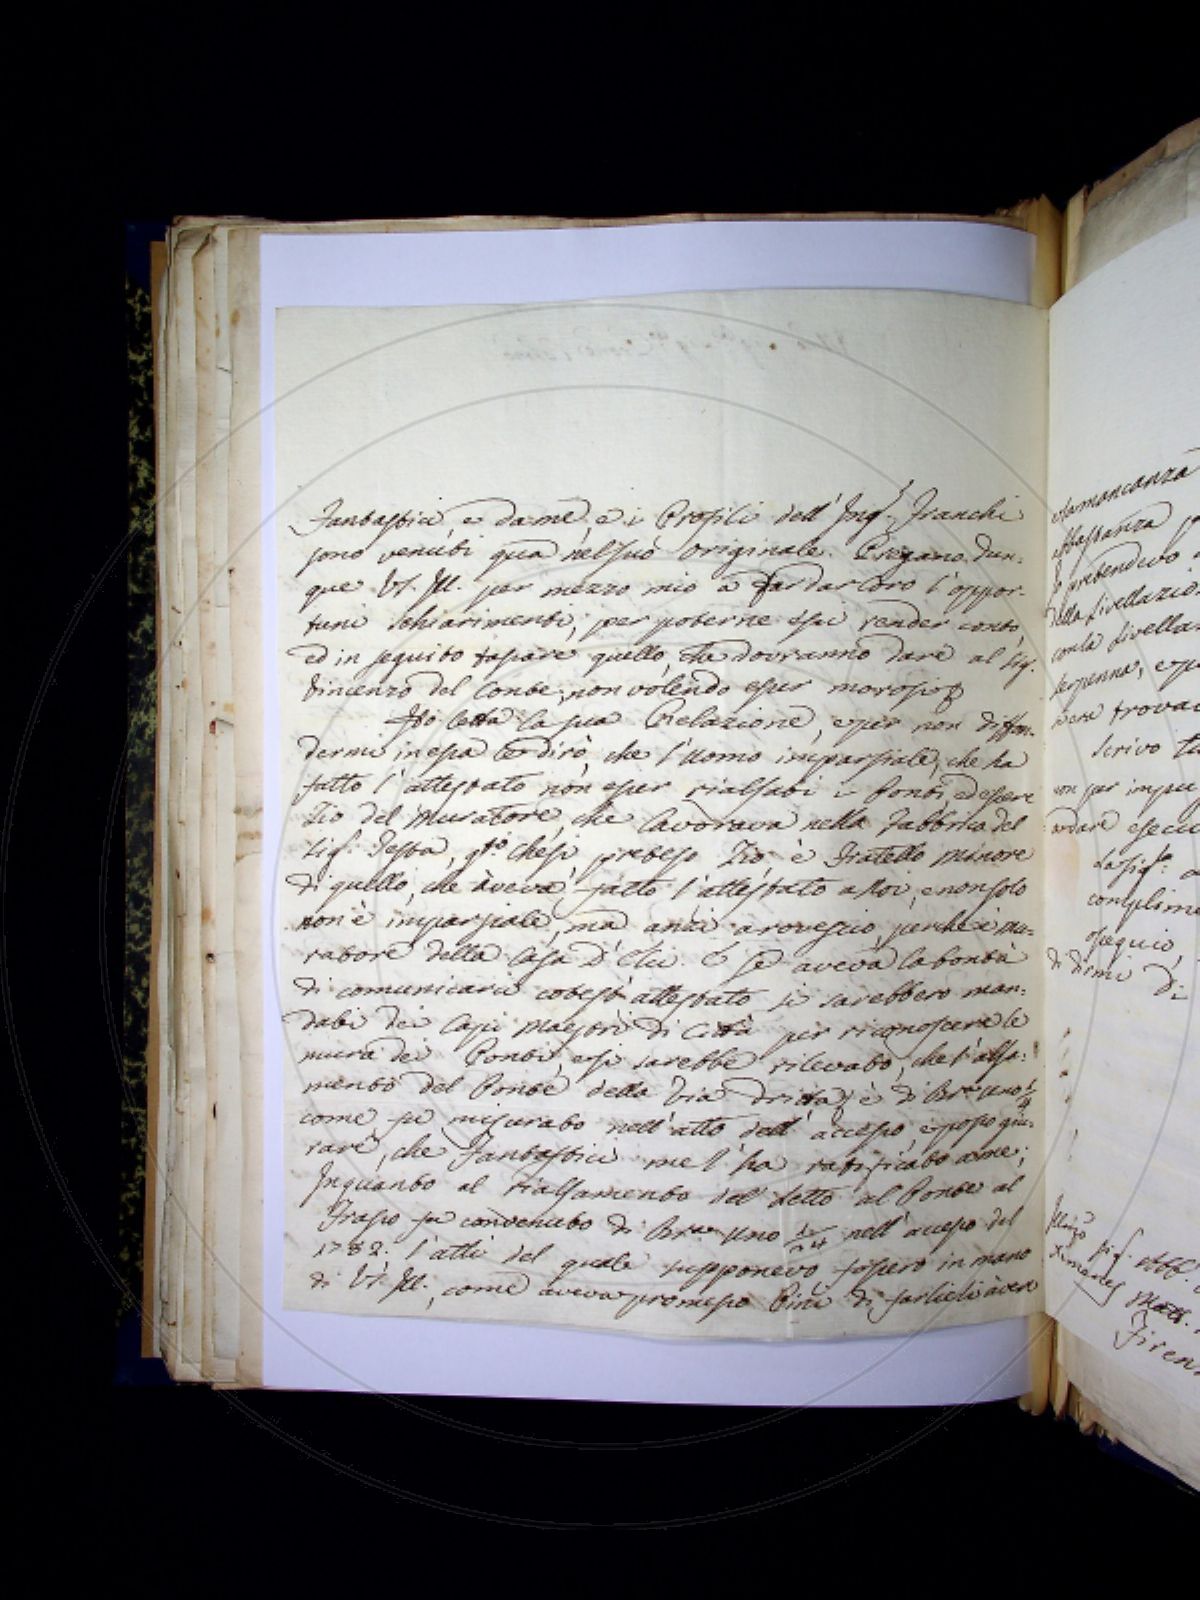 Fantastici, e da me, e i Profili dell'Ing.r Franchi
sono venuti quà nel suo originale. Pregano dun:
que VS. Ill. per mezzo mio à far dar loro l'oppor:
tuni schiarimenti, per poterne essi render conto,
ed in seguito sapare quello, che dovranno dare al Sig.
Vincenzo del Conte, non volendo esser morosi
Hò letta la sua Relazione, e per non diffon:
dermi in essa le dirò, che l'Uomo imparsiale, che ha
fatto l'attestato non esser rialsati i Ponti, ed essere
Zio del Muratore, che lavorava nella Fabbrica del
Sig. Testa, q.to che si preteso Zio è Fratello minore
di quello, che aveva fatto l'attestato a Noi, e non solo
non è imparsiale, ma anzi a rovescio, perche è mu:
ratore della Casa D'Elci. E se aveva la bontà
di comunicarci cotest' attestato si sarebbero man:
dati dei Capi Maestri di Città per riconoscere le
mura dei Ponti, e si sarebbe rilevato, che l'alsa:
mento del Ponte della Via dritta è di Br.a uno 1/4
come fu misurato nell'atto dell'accesso, e posso giu:
rare, che Fantastici me l'ha ratificato a me;
Inquanto al rialsamento del detto al Ponte al
Frasso fu convenuto di Br.a Uno nell'accesso del
1782. l'atti del quale supponevo fossero in mano
di VS. Ill., come aveva promesso Pini di farlieli aver
la mancanza
abbastanza
pretendevo
della Livellazio
con la Livella
penna, e
trovar
Scrivo
non per
andare
La Sig.ra
complime
ossequio,
di dirmi di
Sig. Abb.
Ximenes Matt.
Firen